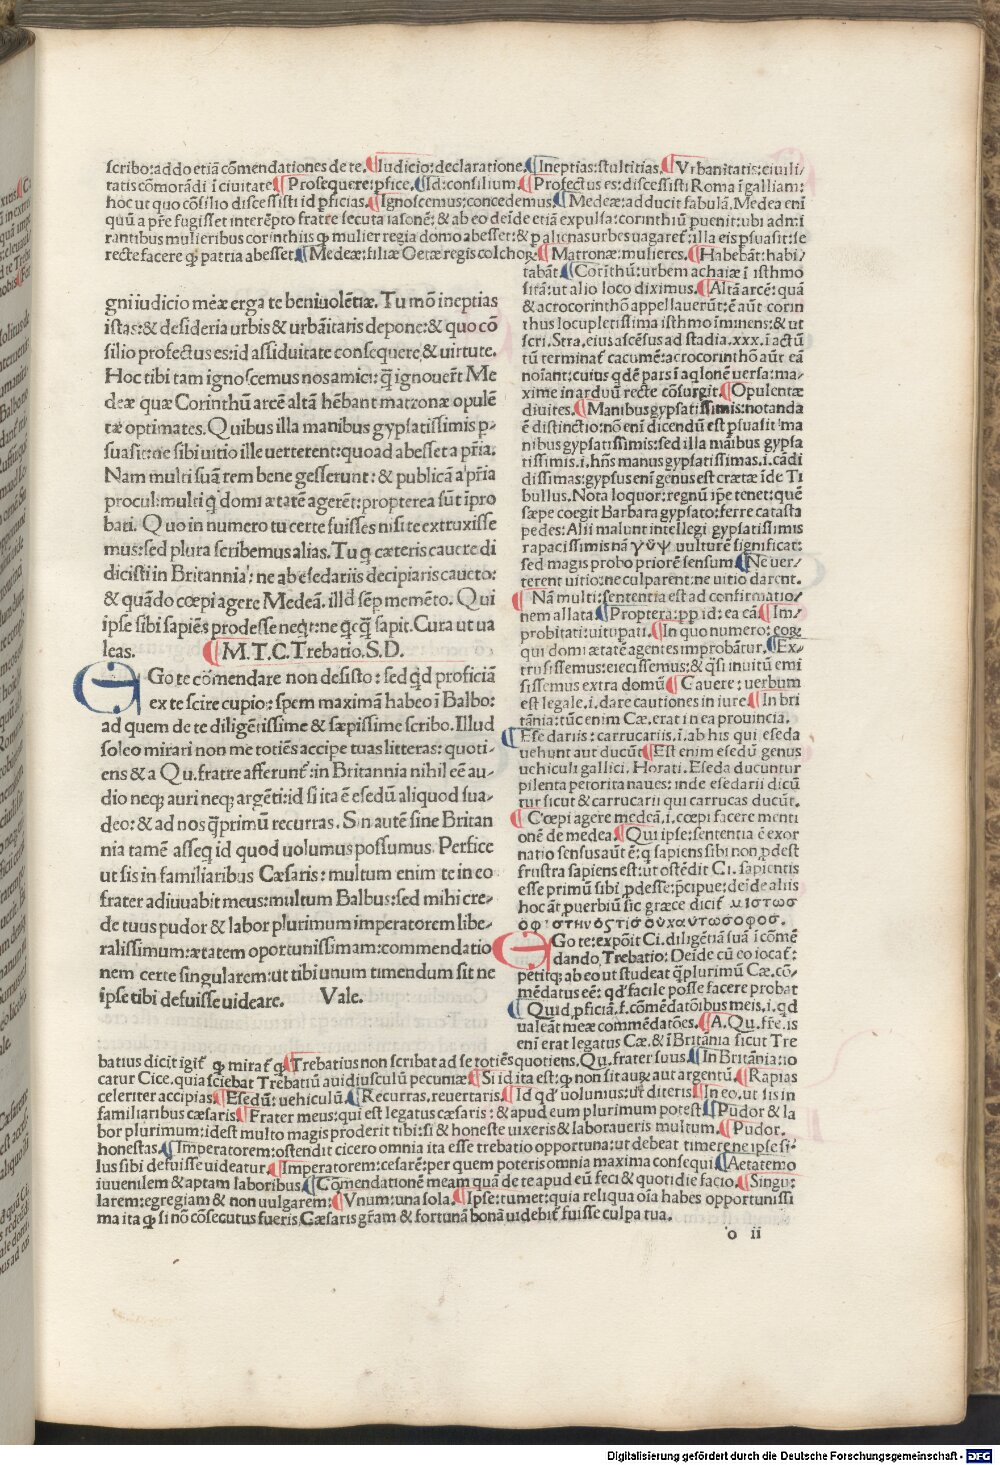 scribo: addo etiã cõmendationes de te. ¶Iudicio: declaratione. ¶Ineptias: stultitias. ¶Vrbanitatis: eiuili/
tatis cõmorãdi ĩ ciuitate ¶Prosequere: pfice. ¶Id: consilium. ¶Profectus es: discessisti Roma ĩ galliam:
hoc ut quo cõsilio discessisti id pficias. ¶Ignoscemus: concedemus. ¶Medeæ: adducit fabulã. Medea eni
quũ a pr̃e fugisset interẽpto fratre secuta iasonẽ: & ab eo deĩde etiã expulsa: corinthiũ puenit: ubi adm̃i
rantibus mulieribus corinthiis ꝙ mulier regia domo abesset: & p alienas urbes uagaret̃. illa eis psuasit: se
recte facere ꝙ patria abesset. ¶Medeæ: filiæ Oetæ regis colchoꝝ. ¶Matronæ: mulieres. ¶Habebãt: habi/
tabãt ¶Corĩthũ: urbem achaiæ ĩ isthmo
sitã: ut alio loco diximus. ¶Altã arcẽ: quã
& acrocorinthõ appellauerũt: ẽ aũt corin
thus locupletissima isthmo ĩminens: & ut
scri. Stra. eius ascẽsus ad stadia .xxx. ĩ actũ
tũ terminat̃ cacumẽ: acrocorinthõ aũt eã
noĩant: cuius qdẽ pars ĩ aqlonẽ uersa: ma/
xime in arduũ recte cõsurgit. ¶Opulentæ
diuites. ¶Manibus gypsatissimis: notanda
ẽ distinctio: nõ enĩ dicendũ est psuasit ma
nibus gypsatissimis: sed illa maĩbus gypsa
tissimis .i. hñs manus gypsatissimas .i. cãdi
dissimas: gypsus enĩ genus est crætæ ĩde Ti
bullus. Nota loquor: regnũ ip̃e tenet: quẽ
sæpe coegit Barbara gypsato: ferre catasta
pedes: Alii malunt intellegi gypsatissimis
rapacissimis nã γύψ uulturẽ significat:
sed magis probo priorẽ sensum ¶Ne uer/
terent uitio: ne culparent: ne uitio darent.
¶Nã multi: sententia est ad confirmatio/
nem allata ¶Proptera: pp id: ea cã ¶Im/
probitati: uitupati. ¶In quo numero: eoꝝ
qui domi ætatẽ agentes improbãtur. ¶Ex/
trusissemus: eiecissemus: & q̃si inuitũ emi
sissemus extra domũ ¶Cauere: uerbum
est legale .i. dare cautiones in iure. ¶In bri
tãnia: tũc enim Cæ. erat in ea prouincia.
¶Esedariis: carrucariis .i. ab his qui eseda
uehunt aut ducũt ¶Est enim esedũ genus
uehiculi gallici. Horati. Eseda ducuntur
pilenta petorita naues: inde esedarii dicũ
tur sicut & carrucarii qui carrucas ducũt.
¶Cœpi agere medeã .i. cœpi facere menti
onẽ de medea. ¶Qui ipse: sententia ẽ exor
natio sensus aũt ẽ: q sapiens sibi non pdest
frustra sapiens est: ut ostẽdit Ci. sapientis
esse primũ sibi pdesse: p̃cipue: deĩde aliis
hoc ãt puerbiũ sic græce dicit̃ μιστωσ
οφιστηνοστισουχαυτωσοφοσ.
EGo te: expõit Ci. diligẽtiã suã ĩ cõmẽ
dando Trebatio: Deĩde cũ eo iocat̃:
petitq; ab eo ut studeat q̃plurimũ Cæ. cõ/
mẽdatus eẽ: qd̃ facile posse facere probat
¶Quid pficiã. f. cõmẽdatõibus meis .i. qd
ualeãt meæ commẽdatões. ¶A. Qu. fr̃e. is
enĩ erat legatus Cæ. & ĩ Britãnia sicut Tre
gni iudicio meæ erga te beniuolẽtiæ. Tu mõ ineptias
istas: & desideria urbis & urbãitatis depone: & quo cõ
silio profectus es: id assiduitate consequere & uirtute.
Hoc tibi tam ignoscemus nos amici: q̃ ignouer̃t Me
deæ quæ Corinthũ arcẽ altã hẽbant matronæ opulẽ
tæ optimates. Quibus illa manibus gypsatissimis p/
suasit: ne sibi uitio ille uerterent: quo ad abesset a pr̃ia.
Nam multi suã rem bene gesserunt: & publicã a pr̃ia
procul: multi q domi ætatẽ agerẽt: propterea sũt ĩpro
bati. Quo in numero tu certe fuisses nisi te extruxisse
mus: sed plura scribemus alias. Tu q cæteris cauere di
dicisti in Britannia: ne ab esedariis decipiaris caueto:
& quãdo cœpi agere Medeã. illd sẽp memẽto. Qui
ipse sibi sapiẽs prodesse neqt: ne qcq̃ sapit. Cura ut ua
leas. ¶M. T. C. Trebatio. S. D.
EGo te cõmendare non desisto: sed qd proficiã
ex te scire cupio: spem maximã habeo ĩ Balbo:
ad quem de te diligẽtissime & sæpissime scribo. Illud
soleo mirari non me totiẽs accipe tuas litteras: quoti
ens & a Qu. fratre afferunt̃: in Britannia nihil eẽ au/
dio neq; auri neq; argẽti: id si ita ẽ esedũ aliquod sua/
deo: & ad nos q̃primũ recurras. Sin autẽ sine Britan
nia tamẽ asseq id quod uolumus possumus. Perfice
ut sis in familiaribus Cæsaris: multum enim te in eo
frater adiuuabit meus: multum Balbus: sed mihi cre/
de tuus pudor & labor plurimum imperatorem libe/
ralissimum: ætatem oportunissimam: commendatio
nem certe singularem: ut tibi unum timendum sit ne
ipse tibi defuisse uideare. Vale.
batius dicit igit̃ ꝙ mirat̃ ꝙ ¶Trebatius non scribat ad se totiẽs quotiens. Qu. frater suus. ¶In Britãnia: io
catur Cice. quia sciebat Trebatiũ auidiusculũ pecuniæ ¶Si id ita est: ꝙ non sit auꝝ aut argentũ. ¶Rapias
celeriter accipias. ¶Esedũ: uehiculũ. ¶Recurras. reuertaris. ¶Id qd̃ uolumus: ut diteris ¶In eo. ut sis in
familiaribus cæsaris ¶Frater meus: qui est legatus cæsaris: & apud eum plurimum potest. ¶Pudor & la
bor plurimum: idest multo magis proderit tibi: si & honeste uixeris & laboraueris multum. ¶Pudor.
honestas. ¶Imperatorem: ostendit cicero omnia ita esse trebatio opportuna: ut debeat timere ne ipse si/
lus sibi defuisse uideatur. ¶Imperatorem: cesarẽ: per quem poteris omnia maxima consequi. ¶Aetatem: o
iuuenilem & aptam laboribus. ¶Cõmendationẽ meam quã de te apud eũ feci & quotidie facio. ¶Singu/
larem: egregiam & non uulgarem: ¶Vnum: una sola. ¶Ipse: tumet: quia reliqua oĩa habes opportunissi
ma ita ꝙ si nõ cõsecutus fueris Cæsaris gr̃am & fortunã bonã uidebit̃ fuisse culpa tua.
o ii
Digitalisierung gefördert durch die Deutsche Forschungsgemeinschaft - DFG